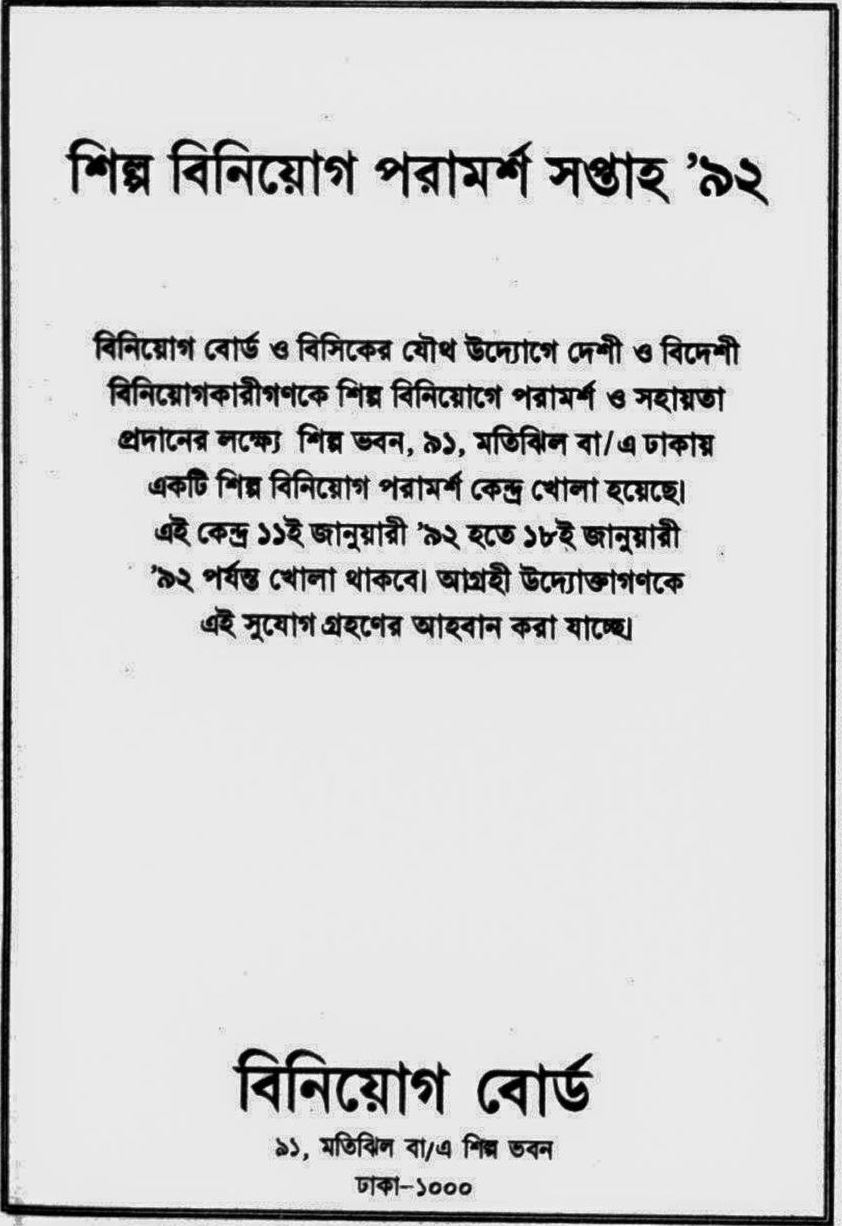 শিল্প বিনিয়োগ পরামর্শ সপ্তাহ ’৯২
বিনিয়োগ বোর্ড ও বিসিকের যৌথ উদ্যোগে দেশী ও বিদেশী
বিনিয়োগকারীগণকে শিল্প বিনিয়োগে পরামর্শ ও সহায়তা
প্রদানের লক্ষ্যে শিল্প ভবন, ৯১, মতিঝিল বা/এ ঢাকায়
একটি শিল্প বিনিয়োগ পরামর্শ কেন্দ্র খোলা হয়েছে।
এই কেন্দ্র ১১ই জানুয়ারী ’৯২ হতে ১৮ই জানুয়ারী
’৯২ পর্যন্ত খোলা থাকবে। আগ্রহী উদ্যোক্তাগণকে
এই সুযোগ গ্রহণের আহবান করা যাচ্ছে।
বিনিয়োগ বোর্ড
৯১, মতিঝিল বা/এ শিল্প ভবন
ঢাকা-১০০০